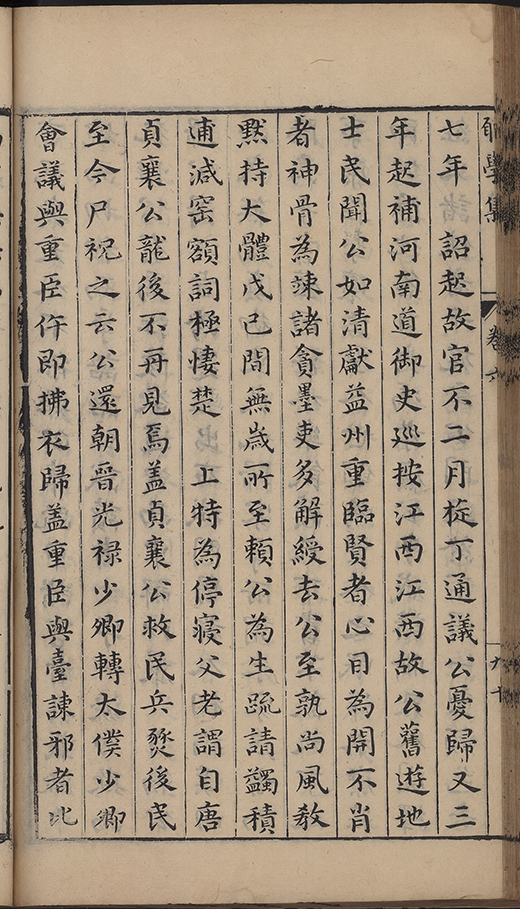 七年　詔起故官不二月旋丁通議公憂歸又三
年起補河南道御史巡按江西江西故公舊遊地
士民聞公如清獻益州重臨賢者心目為開不肖
者神骨為竦諸貪墨吏多解綬去公至孰尚風教
黙持大體戊己間無歲所至賴公為生疏請蠲積
逋減窑額詞極悽楚　上特為停寢父老謂自唐
貞襄公龍後不再見焉盖貞襄公救民兵燹後民
至今尸祝之云公還朝晉光禄少卿轉太僕少卿
會議與重臣忤即拂衣歸盖重臣與臺諫邪者比